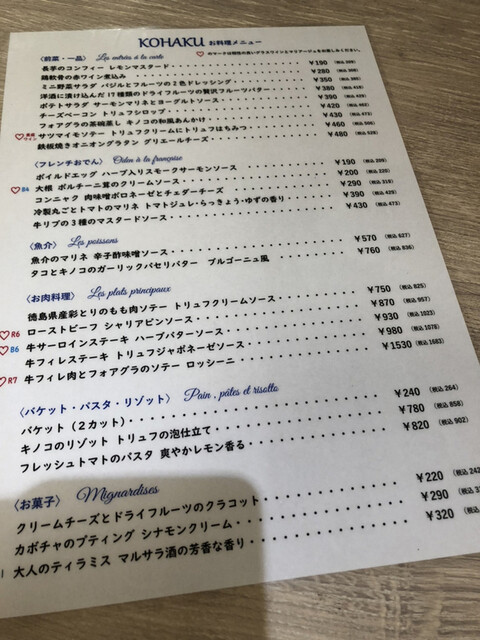 KOHAKU お料理メニュー
♡のマークは相性の良いグラスワインとマリアージュをお楽しみください。
〈前菜・一品〉 Les entrées à la carte
長芋のコンフィー レモンマスタード ¥190 (税込 209)
鶏軟骨の赤ワイン煮込み ¥280 (税込 308)
ミニ野菜サラダ バジルとフルーツの2色ドレッシング ¥350 (税込 385)
洋酒に漬け込んだ17種類のドライフルーツの贅沢フルーツバター ¥380
ポテトサラダ サーモンマリネとヨーグルトソース ¥390 (税込 429)
チーズベーコン トリュフシロップ ¥420 (税込 462)
フォアグラの茶碗蒸し キノコの和風あんかけ ¥430 (税込 473)
サツマイモソテー トリュフクリームにトリュフはちみつ ¥460 (税込 506)
鉄板焼きオニオングラタン グリエールチーズ ¥480 (税込 528)
〈フレンチおでん〉 Oden à la française
ボイルドエッグ ハーブ入りスモークサーモンソース ¥190 (税込 209)
♡B4 大根 ポルチーニ茸のクリームソース ¥200 (税込 220)
コンニャク 肉味噌ボロネーゼとチェダーチーズ ¥290 (税込 319)
冷製丸ごとトマトのマリネ トマトジュレ・らっきょう・ゆずの香り ¥390 (税込 429)
牛リブの3種のマスタードソース ¥430 (税込 473)
〈魚介〉 Les poissons
魚介のマリネ 辛子酢味噌ソース ¥570 (税込 627)
タコとキノコのガーリックパセリバター ブルゴーニュ風 ¥760 (税込 836)
〈お肉料理〉 Les plats principaux
徳島県産彩とりのもも肉ソテー トリュフクリームソース ¥750 (税込 825)
♡R6 ローストビーフ シャリアピンソース ¥870 (税込 957)
♡B6 牛サーロインステーキ ハーブバターソース ¥930 (税込 1023)
牛フィレステーキ トリュフジャポネーゼソース ¥980 (税込 1078)
♡R7 牛フィレ肉とフォアグラのソテー ロッシーニ ¥1530 (税込 1683)
〈バケット・パスタ・リゾット〉 Pain, pâtes et risotto
バケット(2カット) ¥240 (税込 264)
キノコのリゾット トリュフの泡仕立て ¥780 (税込 858)
フレッシュトマトのパスタ 爽やかレモン香る ¥820 (税込 902)
〈お菓子〉 Mignardises
クリームチーズとドライフルーツのクラコット ¥220 (税込 242
カボチャのプティング シナモンクリーム ¥290 (税込 3
大人のティラミス マルサラ酒の芳香な香り ¥320 (税込